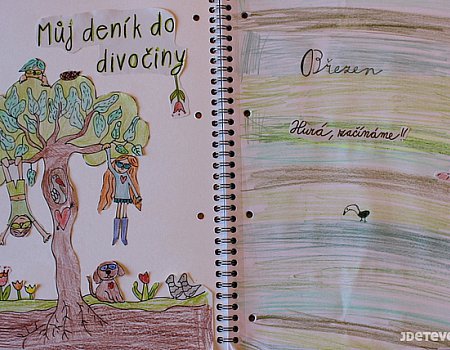 Můj deník do
divočiny
Březen
Hurá, začínáme!!